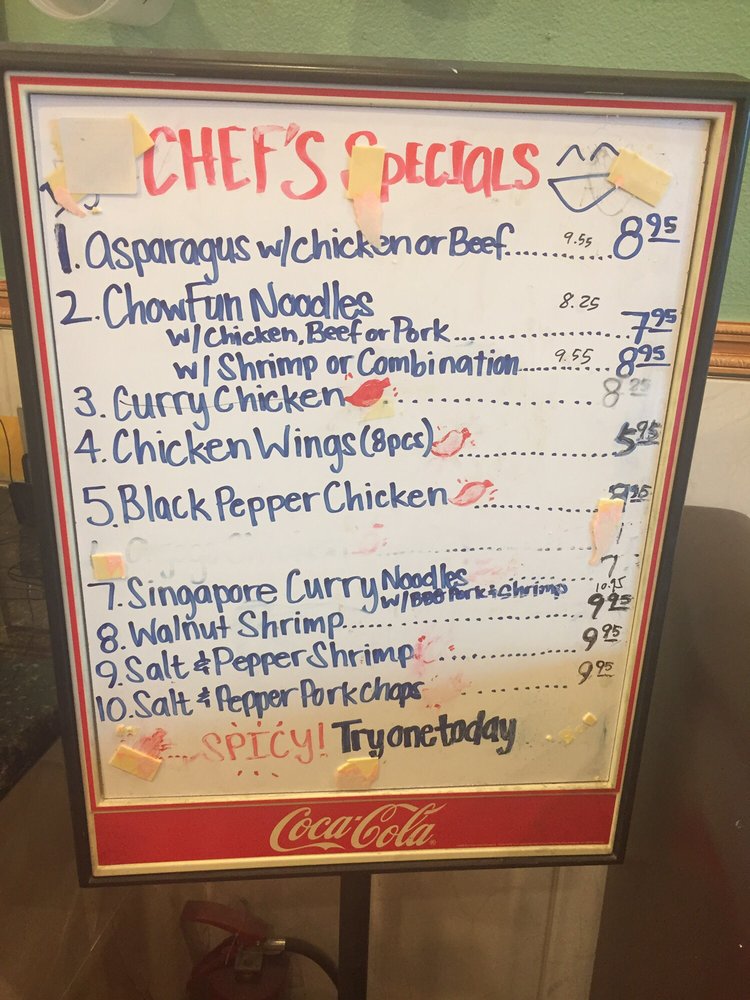 CHEF'S SPECIALS
1. Asparagus w/chicken or Beef....... 9.55 8.95
2. ChowFun Noodles 8.25
w/Chicken, Beef or Pork................ 7.95
w/Shrimp or Combination...... 9.55 8.95
3. Curry Chicken ................... 8.25
4. Chicken Wings (8pcs) ............ 5.95
5. Black Pepper Chicken ............
7. Singapore Curry Noodles
w/BBQ Pork & Shrimp 10.95
8. Walnut Shrimp.......................... 9.95
9. Salt & Pepper Shrimp ............ 9.95
10. Salt & Pepper Pork chops ............ 9.95
... SPICY! Try one today
Coca-Cola